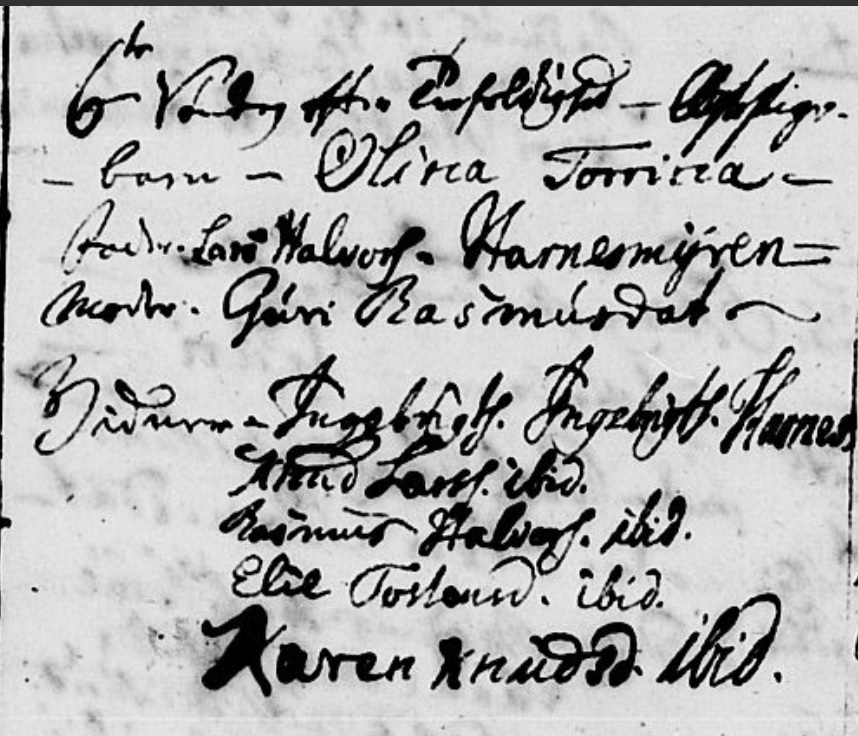 6te Søndag efter Trefoldighed –
– barn – Olina Torrina –
Fader. Lars Halvors. Harnesmÿren =
Moder. Guri Rasmusdat –
Ingebrigts. Ingebrigts. Harnes
Knud Lars. ibid.
Rasmus Halvors. ibid.
Elie Tostensd. ibid.
Karen Knudsd. ibid.